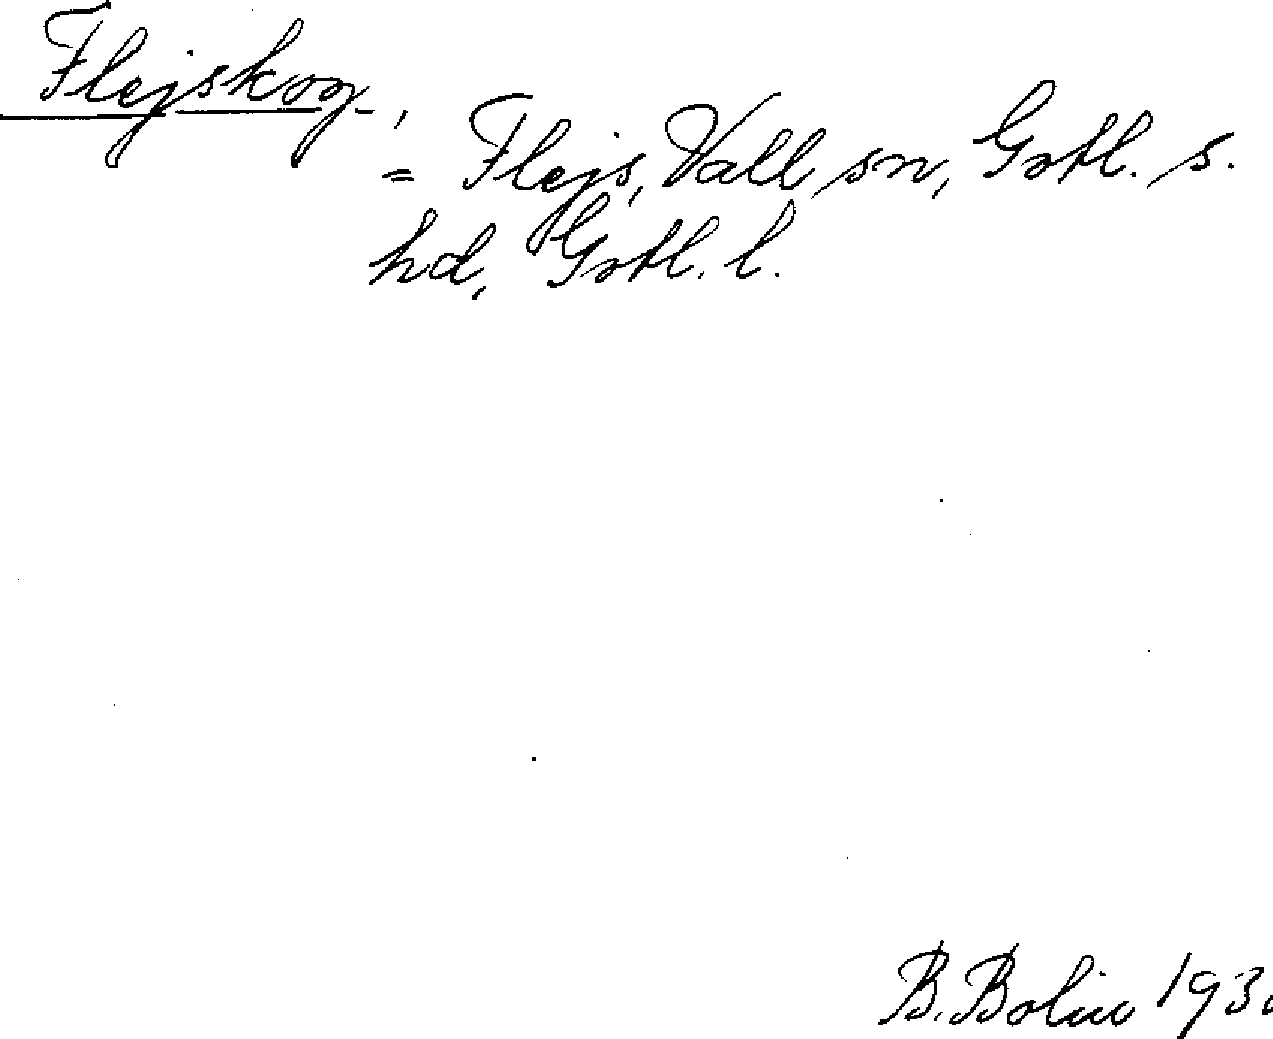 Flejskog,
= Flejs, Vall sn, Gotl. s.
hd, Gotl. l.
B. Bolin